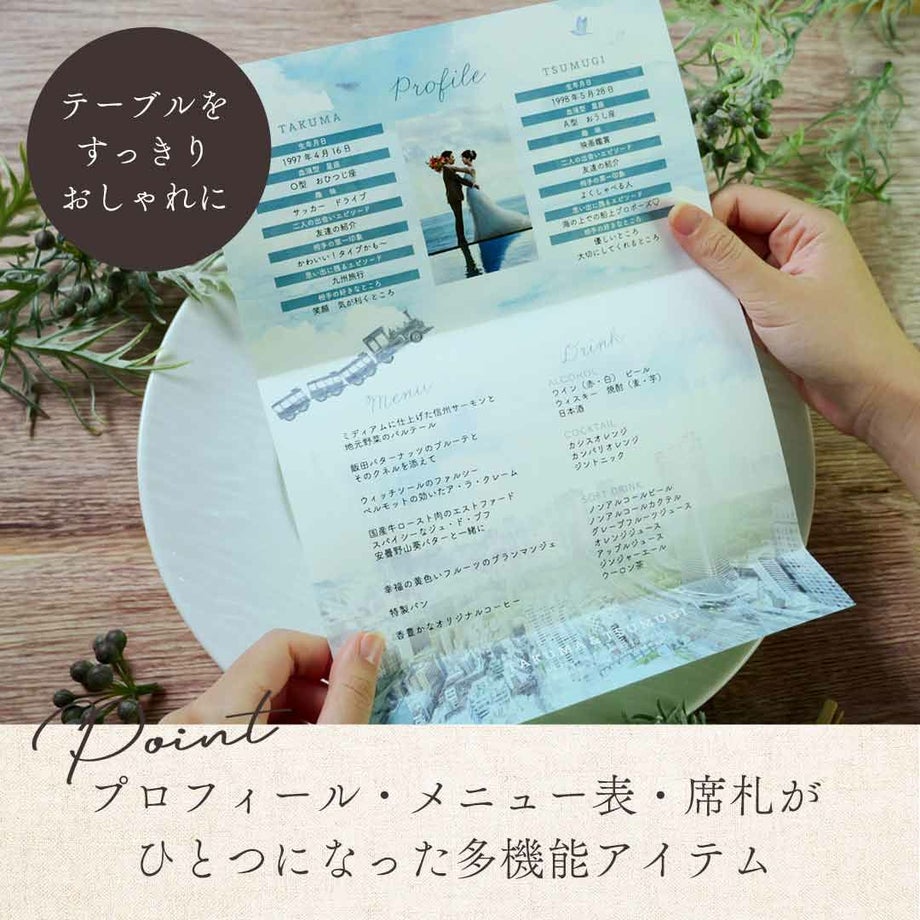 テーブルを
すっきり
おしゃれに
Profile
TAKUMA
生年月日
1997年4月16日
血液型 星座
O型 おひつじ座
趣味
サッカー ドライブ
二人の出会いエピソード
友達の紹介
相手の第一印象
かわいい!タイプかも〜
思い出に残るエピソード
九州旅行
相手の好きなところ
笑顔 気が利くところ
TSUMUGI
生年月日
1998年5月28日
血液型 星座
A型 おうし座
趣味
映画鑑賞
二人の出会いエピソード
友達の紹介
相手の第一印象
よくしゃべる人
思い出に残るエピソード
海の上での船上プロポーズ♡
相手の好きなところ
優しいところ
大切にしてくれるところ
Menu
ミディアムに仕上げた信州サーモンと
地元野菜のバルテール
飯田バターナッツのブルーテと
そのクネルを添えて
ウィッチソールのファルシー
ベルモットの効いたア・ラ・クレーム
国産牛ロースト肉のエストファード
スパイシーなジュ・ド・ブフ
安曇野山葵バターと一緒に
幸福の黄色いフルーツのブランマンジェ
特製パン
香豊かなオリジナルコーヒー
Drink
ALCOHOL
ワイン(赤・白) ビール
ウィスキー 焼酎(麦・芋)
日本酒
COCKTAIL
カシスオレンジ
カンパリオレンジ
ジントニック
SOFT DRINK
ノンアルコールビール
ノンアルコールカクテル
グレープフルーツジュース
オレンジジュース
アップルジュース
ジンジャーエール
ウーロン茶
TAKUMA & TSUMUGI
Point
プロフィール・メニュー表・席札が
ひとつになった多機能アイテム